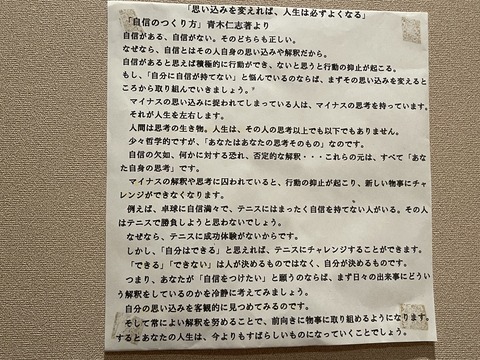 「思い込みを変えれば、人生は必ずよくなる」
「自信のつくり方」青木仁志著より
自信がある、自信がない。そのどちらも正しい。
なぜなら、自信とはその人自身の思い込みや解釈だから。
自信があると思えば積極的に行動ができ、ないと思うと行動の抑止が起こる。
もし、「自分に自信が持てない」と悩んでいるのならば、まずその思い込みを変えると
ころから取り組んでいきましょう。
マイナスの思い込みに捉われてしまっている人は、マイナスの思考を持っています。
それが人生を左右します。
人間は思考の生き物。人生は、その人の思考以上でも以下でもありません。
少々哲学的ですが、「あなたはあなたの思考そのもの」なのです。
自信の欠如、何かに対する恐れ、否定的な解釈・・・これらの元は、すべて「あな
た自身の思考」です。
マイナスの解釈や思考に囚われていると、行動の抑止が起こり、新しい物事にチャ
レンジができなくなります。
例えば、卓球に自信満々で、テニスにはまったく自信を持てない人がいる。その人
はテニスで勝負しようと思わないでしょう。
なぜなら、テニスに成功体験がないからです。
しかし、「自分はできる」と思えれば、テニスにチャレンジすることができます。
「できる」「できない」は人が決めるものではなく、自分が決めるものです。
つまり、あなたが「自信をつけたい」と願うのならば、まず日々の出来事にどうい
う解釈をしているのかを冷静に考えてみましょう。
自分の思い込みを客観的に見つめてみるのです。
そして常によい解釈を努めることで、前向きに物事に取り組めるようになります。
するとあなたの人生は、今よりもすばらしいものになっていくことでしょう。